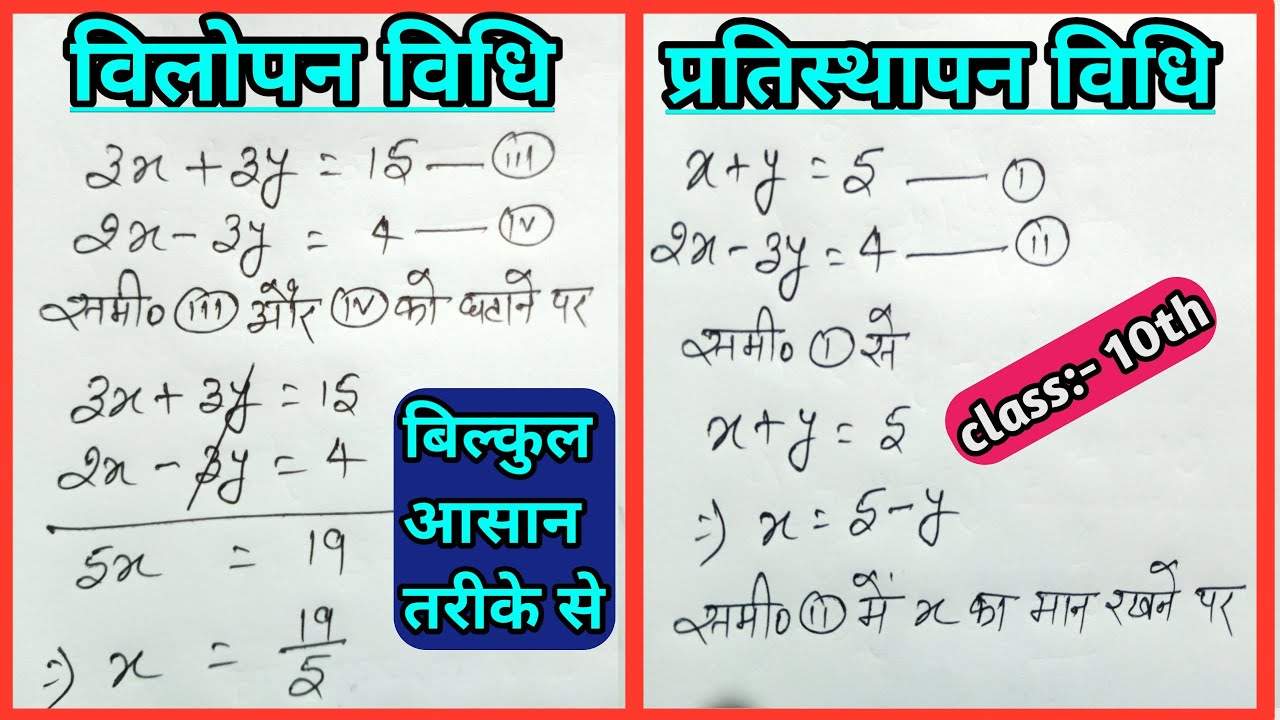 विलोपन विधि
3x + 3y = 15 — (III)
2x - 3y = 4 — (IV)
समी० (III) और (IV) को घटाने पर
3x + 3y = 15
2x - 3y = 4
5x = 19
=) x = 19/5
बिल्कुल
आसान
तरीके से
प्रतिस्थापन विधि
x + y = 5 — (I)
2x - 3y = 4 — (II)
समी० (I) से
x + y = 5
=) x = 5 - y
समी० (II) में x का मान रखने पर
class:- 10th